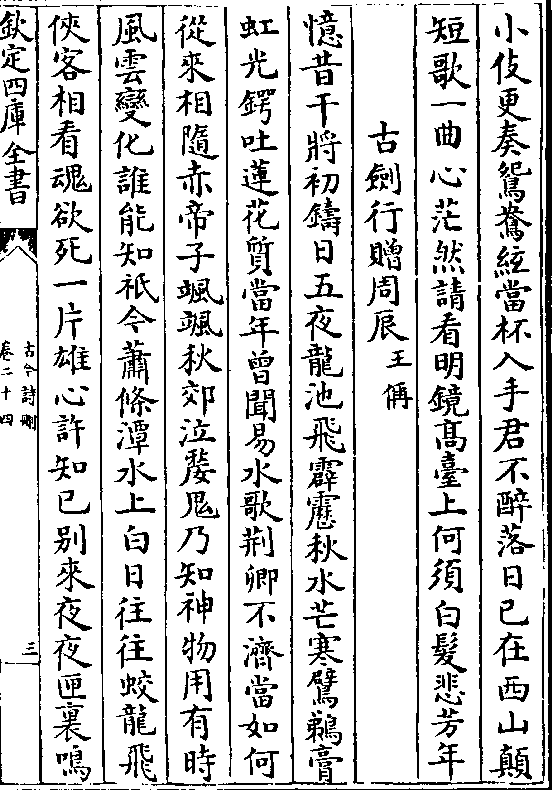 小伎更奏鴛鴦絃當杯入手君不醉落日已在西山顛
短歌一曲心茫然請看明鏡髙臺上何須白髮悲芳年
古劍行贈周辰王偁
憶昔干將初鑄日五夜龍池飛霹靂秋水芒寒鸊鵜膏
虹光鍔吐蓮花質當年曽聞易水歌荆卿不濟當如何
從來相隨赤帝子颯颯秋郊泣嫠鬼乃知神物用有時
風雲變化誰能知祇今蕭條潭水上白日往往蛟龍飛
俠客相看魂欲死一片雄心許知已别來夜夜匣裏鳴
欽定四庫全書
古今詩刪
卷二十四
三